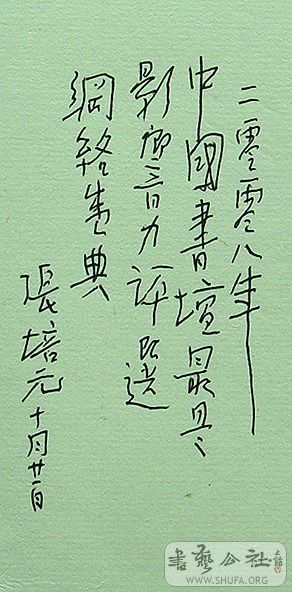 二零零八年
中國書壇最具
影響力評選
網絡盛典
張培元十月廿一日
書藝公社
WWW.SHUFA.ORG